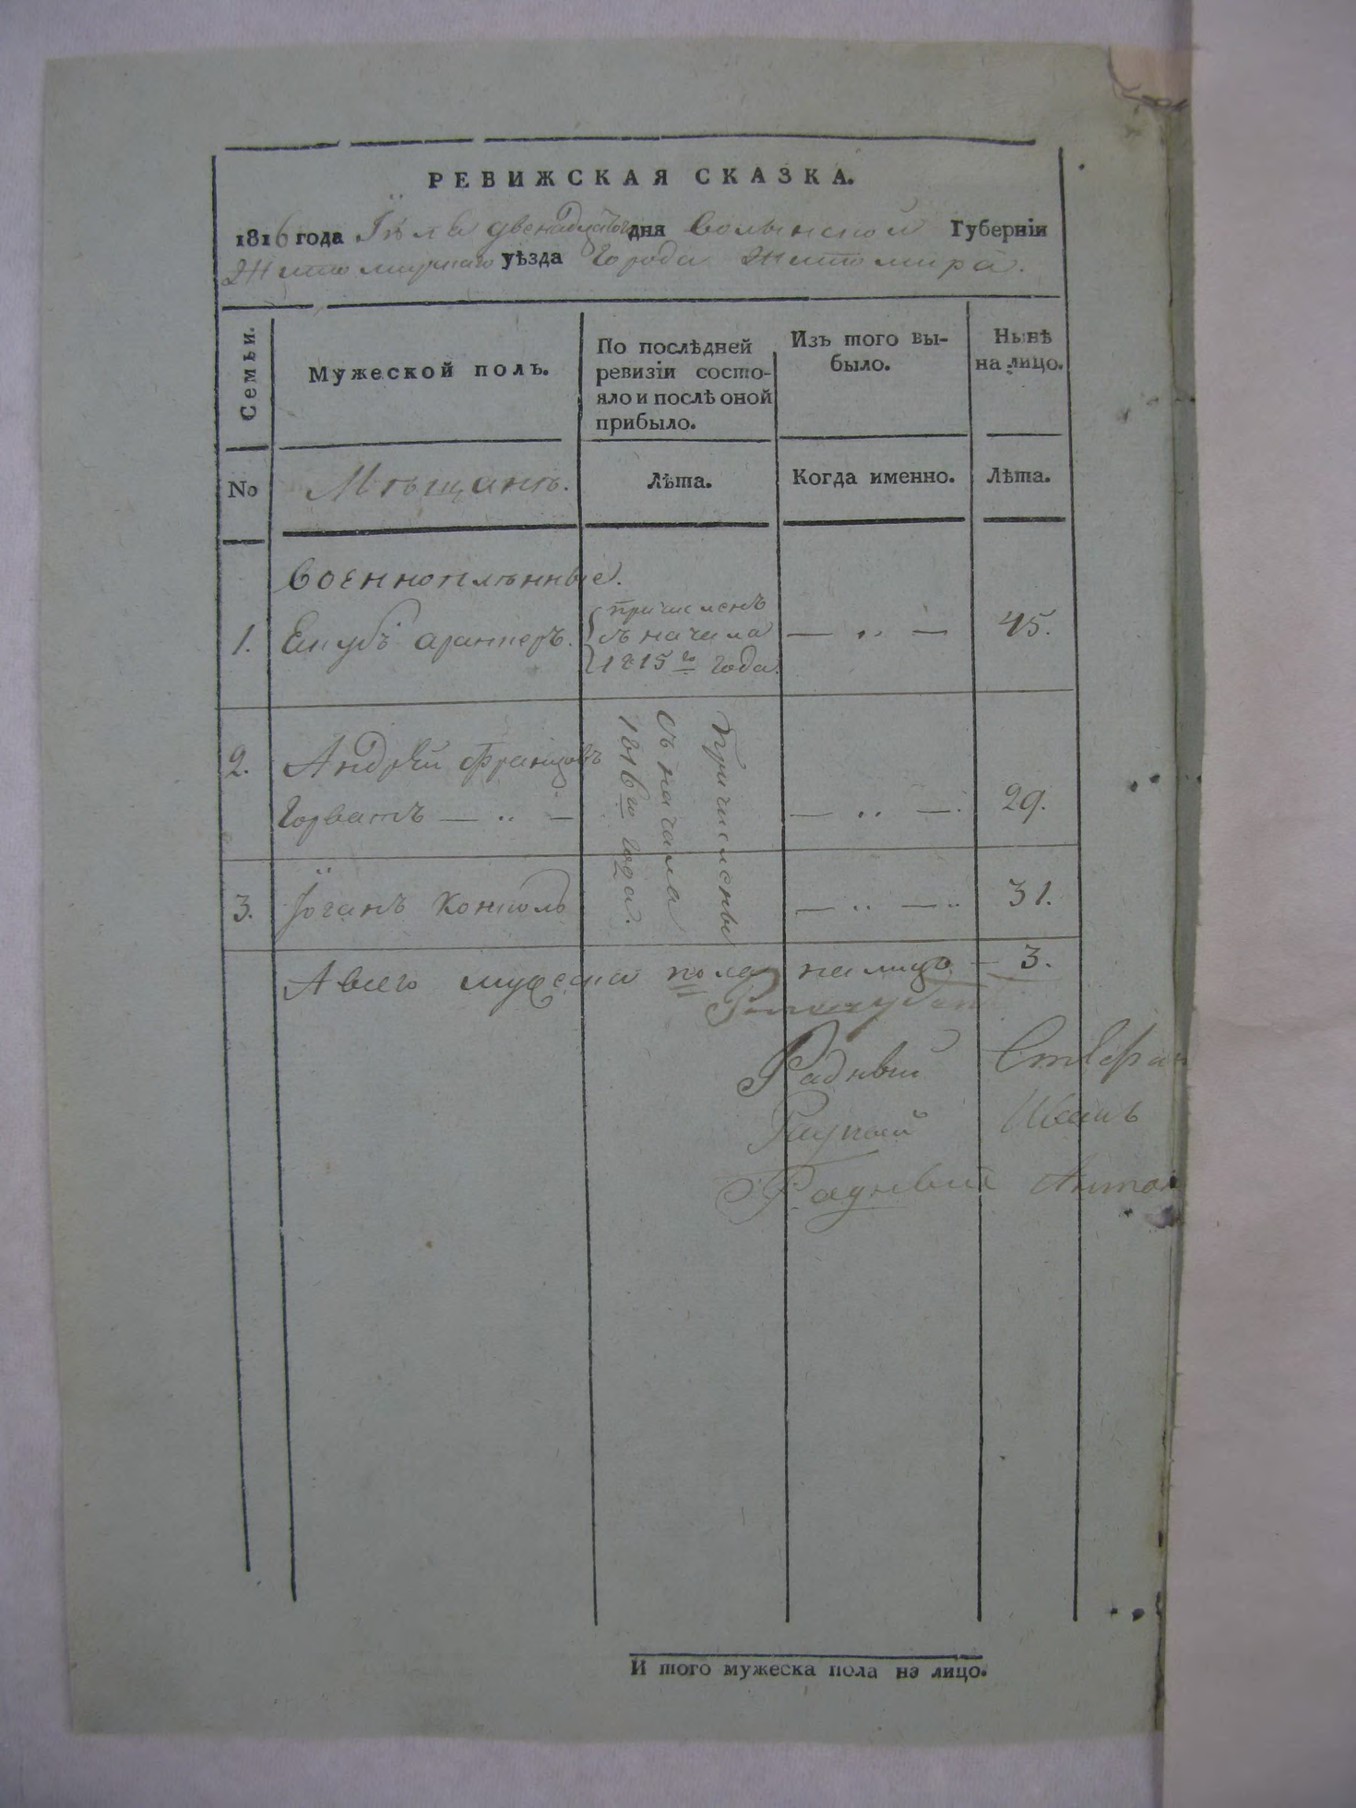 РЕВИЖСКАЯ СКАЗКА.
1816 года Іюля двенадцатого дня Волынской Губерніи
Житомирскаго уѣзда Города Житомира.
Семьи.
Мужеской полъ.
По послѣдней ревизіи состо-
яло и послѣ оной
прибыло.
Изъ того вы-
было.
Нынѣ
на лицо.
No
Мѣщанъ.
Лѣта.
Когда именно.
Лѣта.
Военноплѣнные.
1. Якубъ
причисленъ
съ начала
1815го года.
— „ —
45.
2. Андрей Францовъ
Горватъ — „ —
Причислены
съ начала
1816го года.
— „ —
29.
3. Іоганъ
— „ —
31.
А всего мужеска пола на лицо — 3.
Радный Стефан
Радный Иванъ
Радный Антон
И того мужеска пола на лицо.